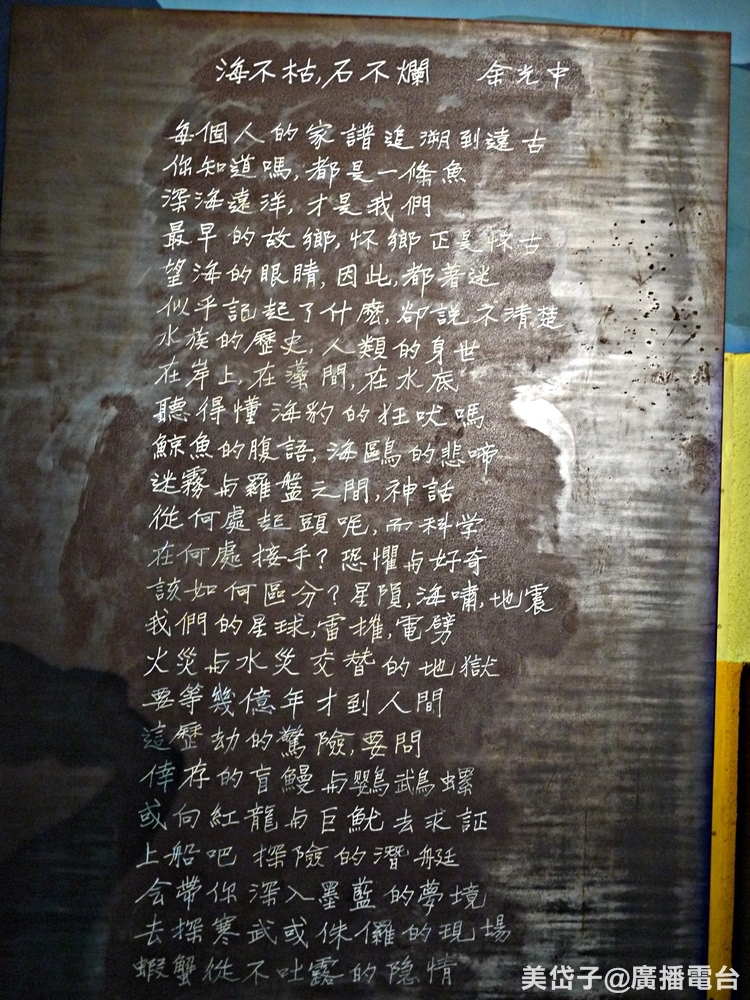 海不枯,石不爛 余光中
每個人的家譜追溯到遠古
你知道嗎,都是一條魚
深海遠洋,才是我們
最早的故鄉,怀鄉正是怀古
望海的眼睛,因此,都著迷
似乎記起了什麼,卻說不清楚
水族的歷史,人類的身世
在岸上,在藻間,在水底
聽得懂海豹的狂吠嗎
鯨魚的腹語,海鷗的悲啼
迷霧与羅盤之間,神話
從何處起頭呢,而科学
在何處接手?恐懼与好奇
該如何區分?星隕,海嘯,地震
我們的星球,雷摧,電劈
火災与水災交替的地獄
要等幾億年才到人間
這歷劫的驚險,要問
倖存的盲鰻与鸚鵡螺
或向紅龍与巨魷去求証
上船吧 探險的潛艇
会帶你深入墨藍的夢境
去探寒武或侏儸的現場
蝦蟹從不吐露的隐情
美岱子@廣播電台